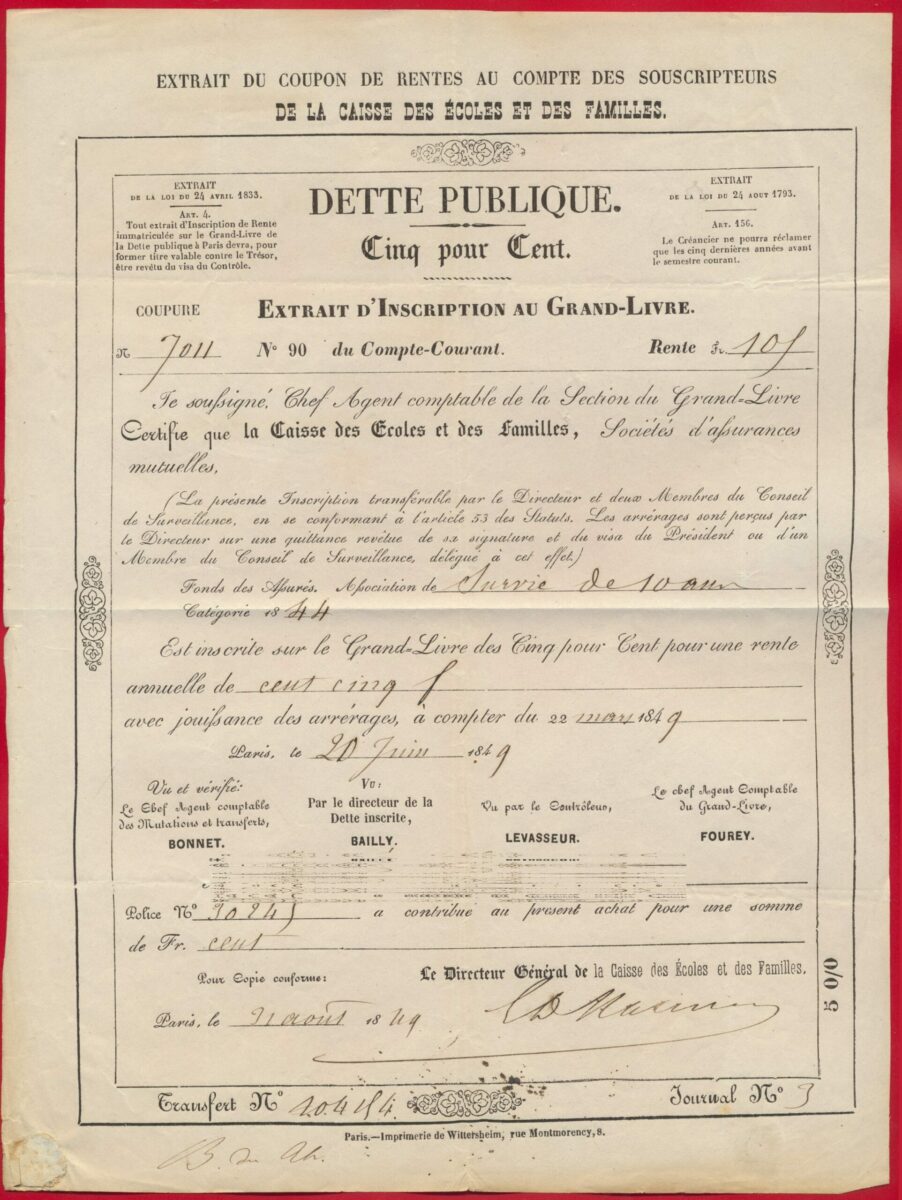 EXTRAIT DU COUPON DE RENTES AU COMPTE DES SOUSCRIPTEURS
DE LA CAISSE DES ÉCOLES ET DES FAMILLES.
EXTRAIT
DE LA LOI DU 24 AVRIL 1833.
ART. 4.
Tout extrait d'Inscription de Rente
immatriculée sur le Grand-Livre de
la Dette publique à Paris devra, pour
former titre valable contre le Trésor,
être revêtu du visa du Contrôle.
DETTE PUBLIQUE.
Cinq pour Cent.
EXTRAIT
DE LA LOI DU 24 AOUT 1793.
ART. 156.
Le Créancier ne pourra réclamer
que les cinq dernières années avant
le semestre courant.
COUPURE EXTRAIT D'INSCRIPTION AU GRAND-LIVRE.
N 7011 N° 90 du Compte-Courant. Rente Fr. 105
Je soussigné, Chef Agent comptable de la Section du Grand-Livre
Certifie que la Caisse des Ecoles et des Familles, Sociétés d'assurances
mutuelles,
(La présente Inscription transférable par le Directeur et deux Membres du Conseil
de Surveillance, en se conformant à l'article 53 des Statuts. Les arrérages sont perçus par
le Directeur sur une quittance revêtue de sa signature et du visa du Président ou d'un
Membre du Conseil de Surveillance, délégué à cet effet.)
Fonds des Assurés. Association de Survie de 10 ans
Catégorie 1844
Est inscrite sur le Grand-Livre des Cinq pour Cent pour une rente
annuelle de cent cinq f
avec jouissance des arrérages, à compter du 22 mars 1849
Paris, le 20 Juin 1849
Vu et vérifié:
Le Chef Agent comptable
des Mutations et transferts,
BONNET.
Vu:
Par le directeur de la
Dette inscrite,
BAILLY.
Vu par le Contrôleur,
LEVASSEUR.
Le chef Agent Comptable
du Grand-Livre,
FOUREY.
Police N° 30245 a contribué au present achat pour une somme
de Fr. cent
Pour Copie conforme: Le Directeur Général de la Caisse des Écoles et des Familles.
Paris, le août 1849
5 0/0
Transfert N° 104154 Journal N° 3
Paris.—Imprimerie de Wittersheim, rue Montmorency, 8.